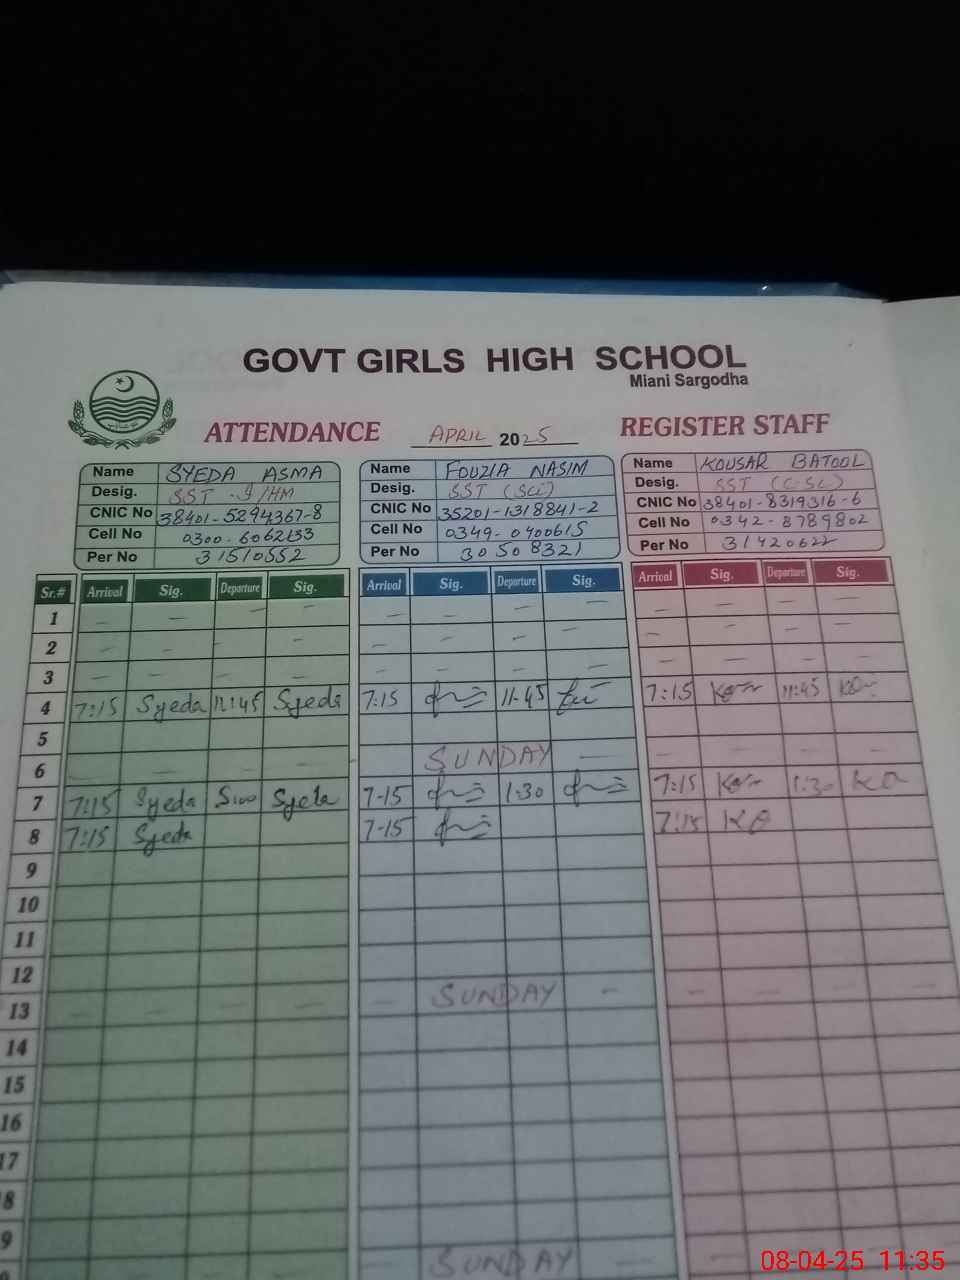 GOVT GIRLS HIGH SCHOOL
Miani Sargodha
ATTENDANCE APRIL 2025 REGISTER STAFF
Name SYEDA ASMA Name FOUZIA NASIM Name KOUSAR BATOOL
Desig. SST -I/HM Desig. SST (Sci) Desig. SST (C-Sc)
CNIC No 38401-5294367-8 CNIC No 35201-1318841-2 CNIC No 38401-8319316-6
Cell No 0300-6062133 Cell No 0349-0400615 Cell No 0342-8789802
Per No 31510552 Per No 30508321 Per No 31420622
Sr.# Arrival Sig. Departure Sig. Arrival Sig. Departure Sig. Arrival Sig. Departure Sig.
1
2
3
4 7:15 Syeda 11:45 Syeda 7:15 11-45 7:15 11:45
5
6 SUNDAY
7 7:15 Syeda 5:00 Syeda 7-15 1:30 7:15 1:30
8 7:15 Syeda 7-15 7:15
9
10
11
12
13 SUNDAY
14
15
16
17
8
9
SUNDAY
08-04-25 11:35